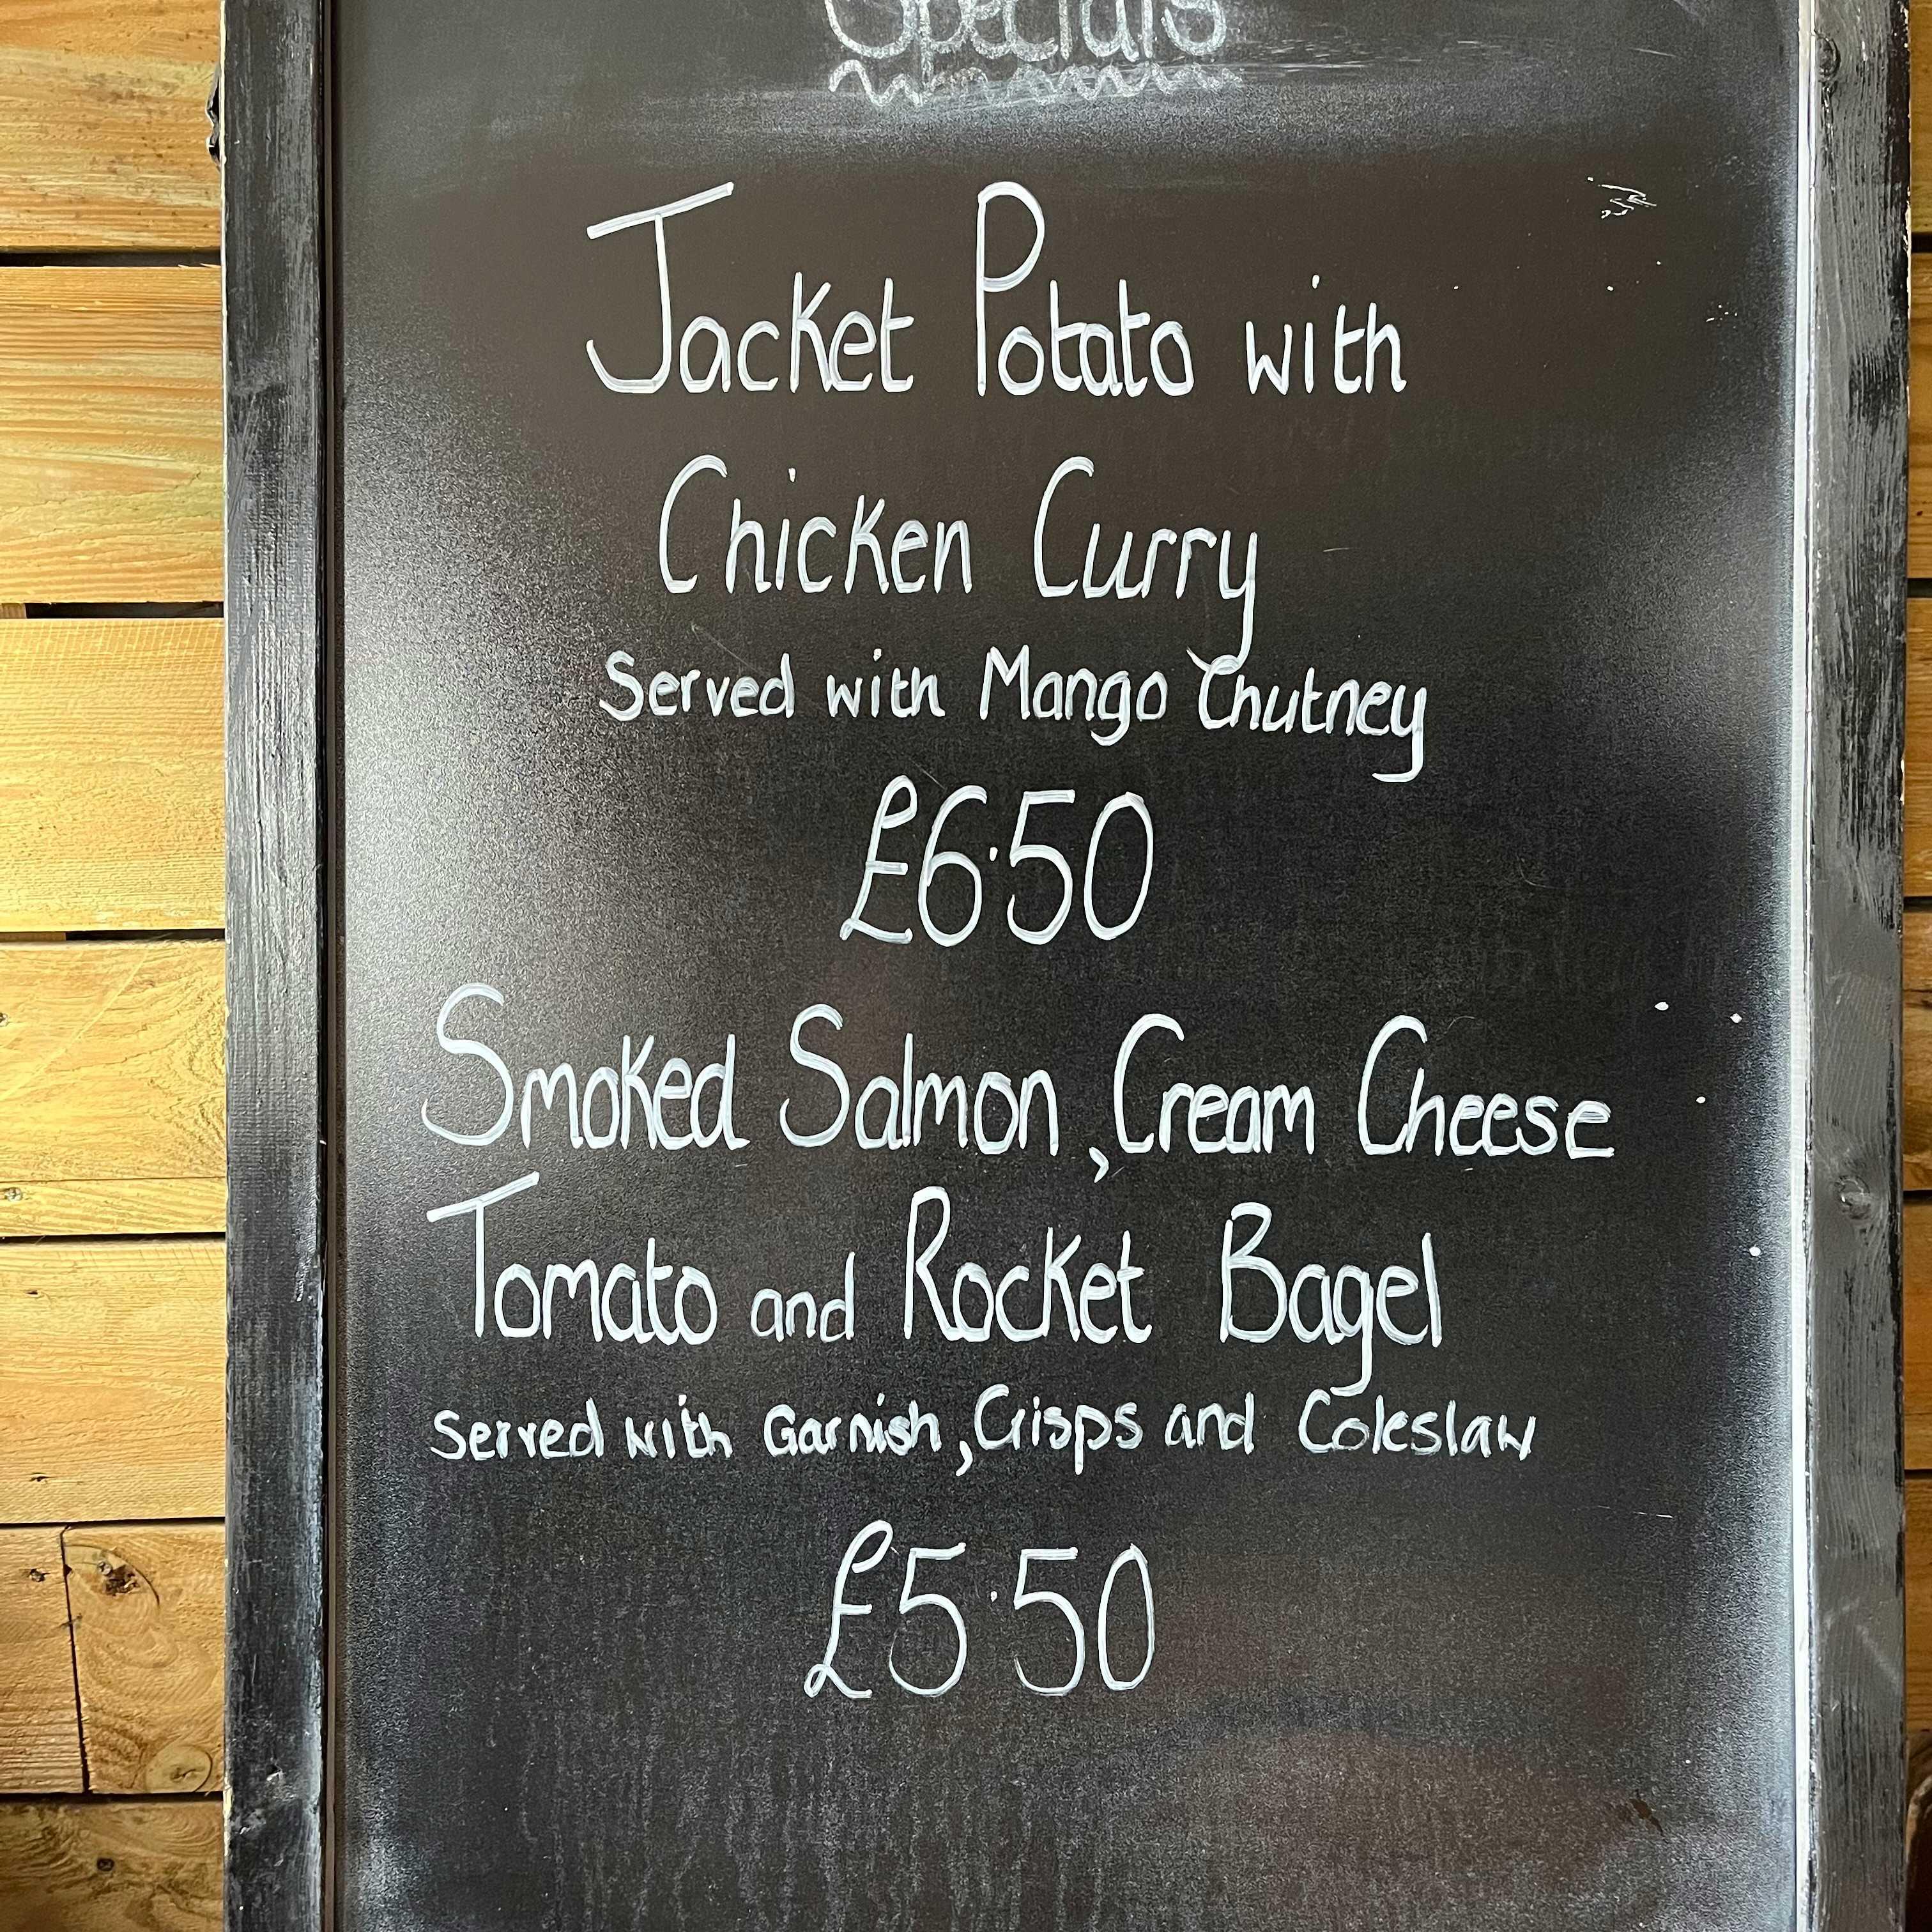 Specials
Jacket Potato with
Chicken Curry
Served with Mango Chutney
£6·50
Smoked Salmon, Cream Cheese
Tomato and Rocket Bagel
Served with Garnish, Crisps and Coleslaw
£5·50